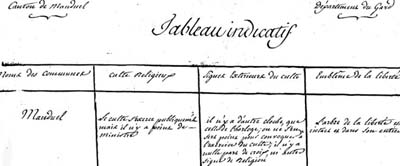 Canton de Manduel
Département du Gard
Tableau indicatif
Noms des communes
culte Religieux
signes Exterieurs du culte
Emblême de la liberté
Manduel
Le culte s'exerce publiquement
mais il n'y a point de
ministre
il n'y a d'autre cloche, que
celle de l'horloge, on ne s'en
sert point pour convoquer à
l'exercice du culte; il n'y a
autre part de croix, ni autres
signes de Religion
L'arbre de la liberté
et dans son entier